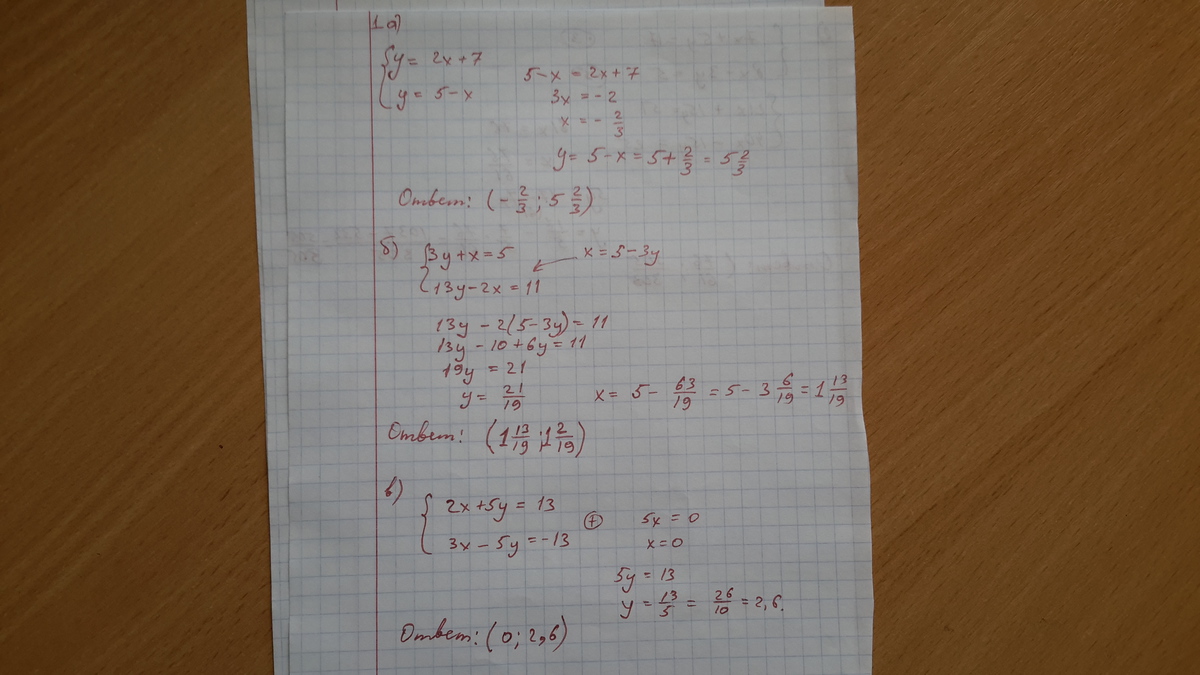 1 а)
{ y = 2x + 7
{ y = 5 - x
5 - x = 2x + 7
3x = -2
x = - 2/3
y = 5 - x = 5 + 2/3 = 5 2/3
Ответ: (- 2/3 ; 5 2/3)
б) { 3y + x = 5
{ 13y - 2x = 11
x = 5 - 3y
13y - 2(5 - 3y) = 11
13y - 10 + 6y = 11
19y = 21
y = 21/19
x = 5 - 63/19 = 5 - 3 6/19 = 1 13/19
Ответ: (1 13/19 ; 1 2/19)
в)
{ 2x + 5y = 13
{ 3x - 5y = -13
⊕
5x = 0
x = 0
5y = 13
y = 13/5 = 26/10 = 2,6.
Ответ: (0; 2,6)